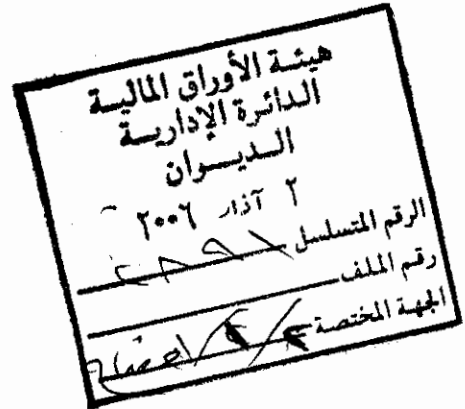 هيئة الأوراق المالية
الدائرة الإدارية
الديوان
٢ آذار ٢٠٠٦
الرقم المتسلسل
رقم الملف
الجهة المختصة